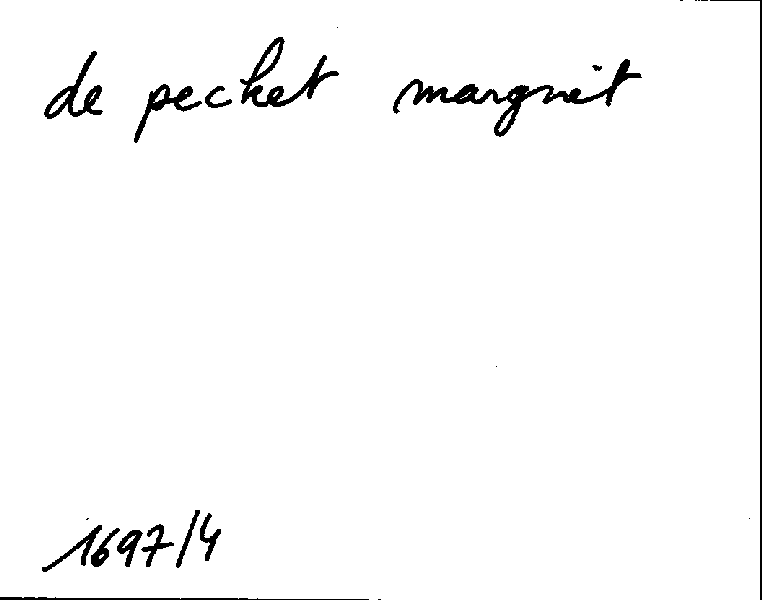 de pecket margrit
1697/4